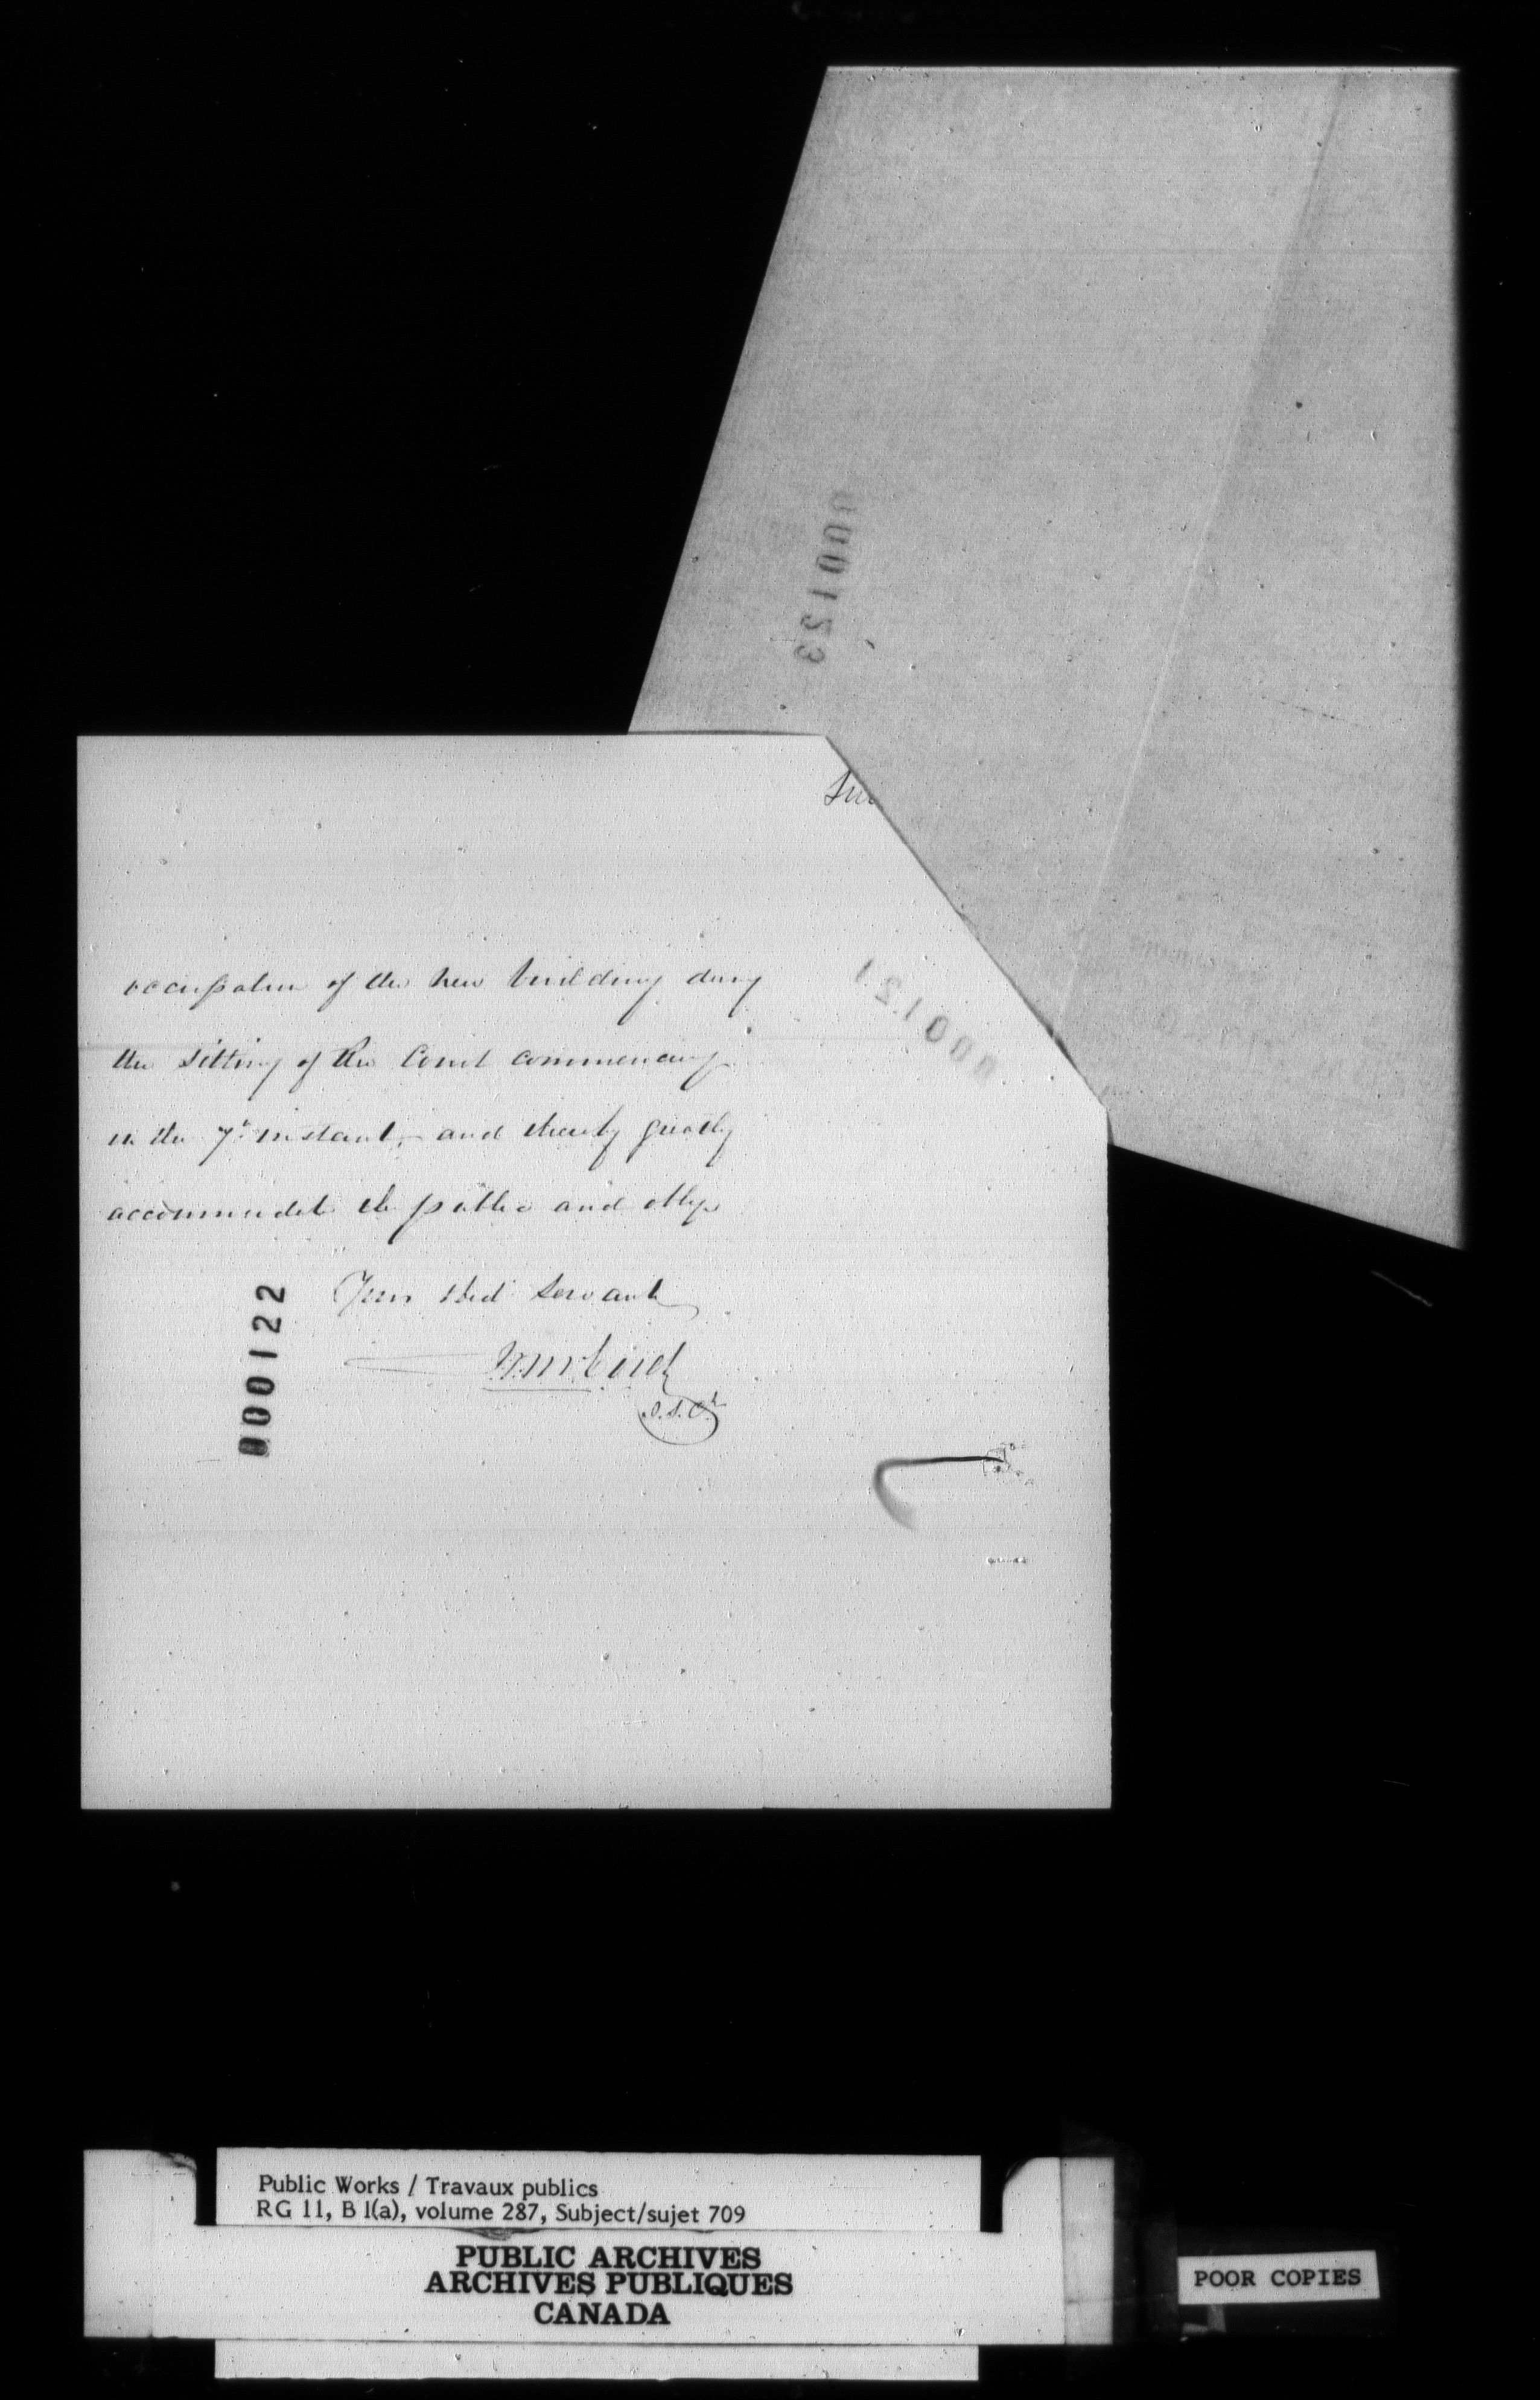 000123
occupation of the new building during
the sitting of the Court commencing
on the 7th instant, and thereby greatly
accommodate the public and oblige
000121
Your Obed Servant
000122
Public Works / Travaux publics
RG 11, B 1(a), volume 287, Subject/sujet 709
PUBLIC ARCHIVES
ARCHIVES PUBLIQUES
CANADA
POOR COPIES